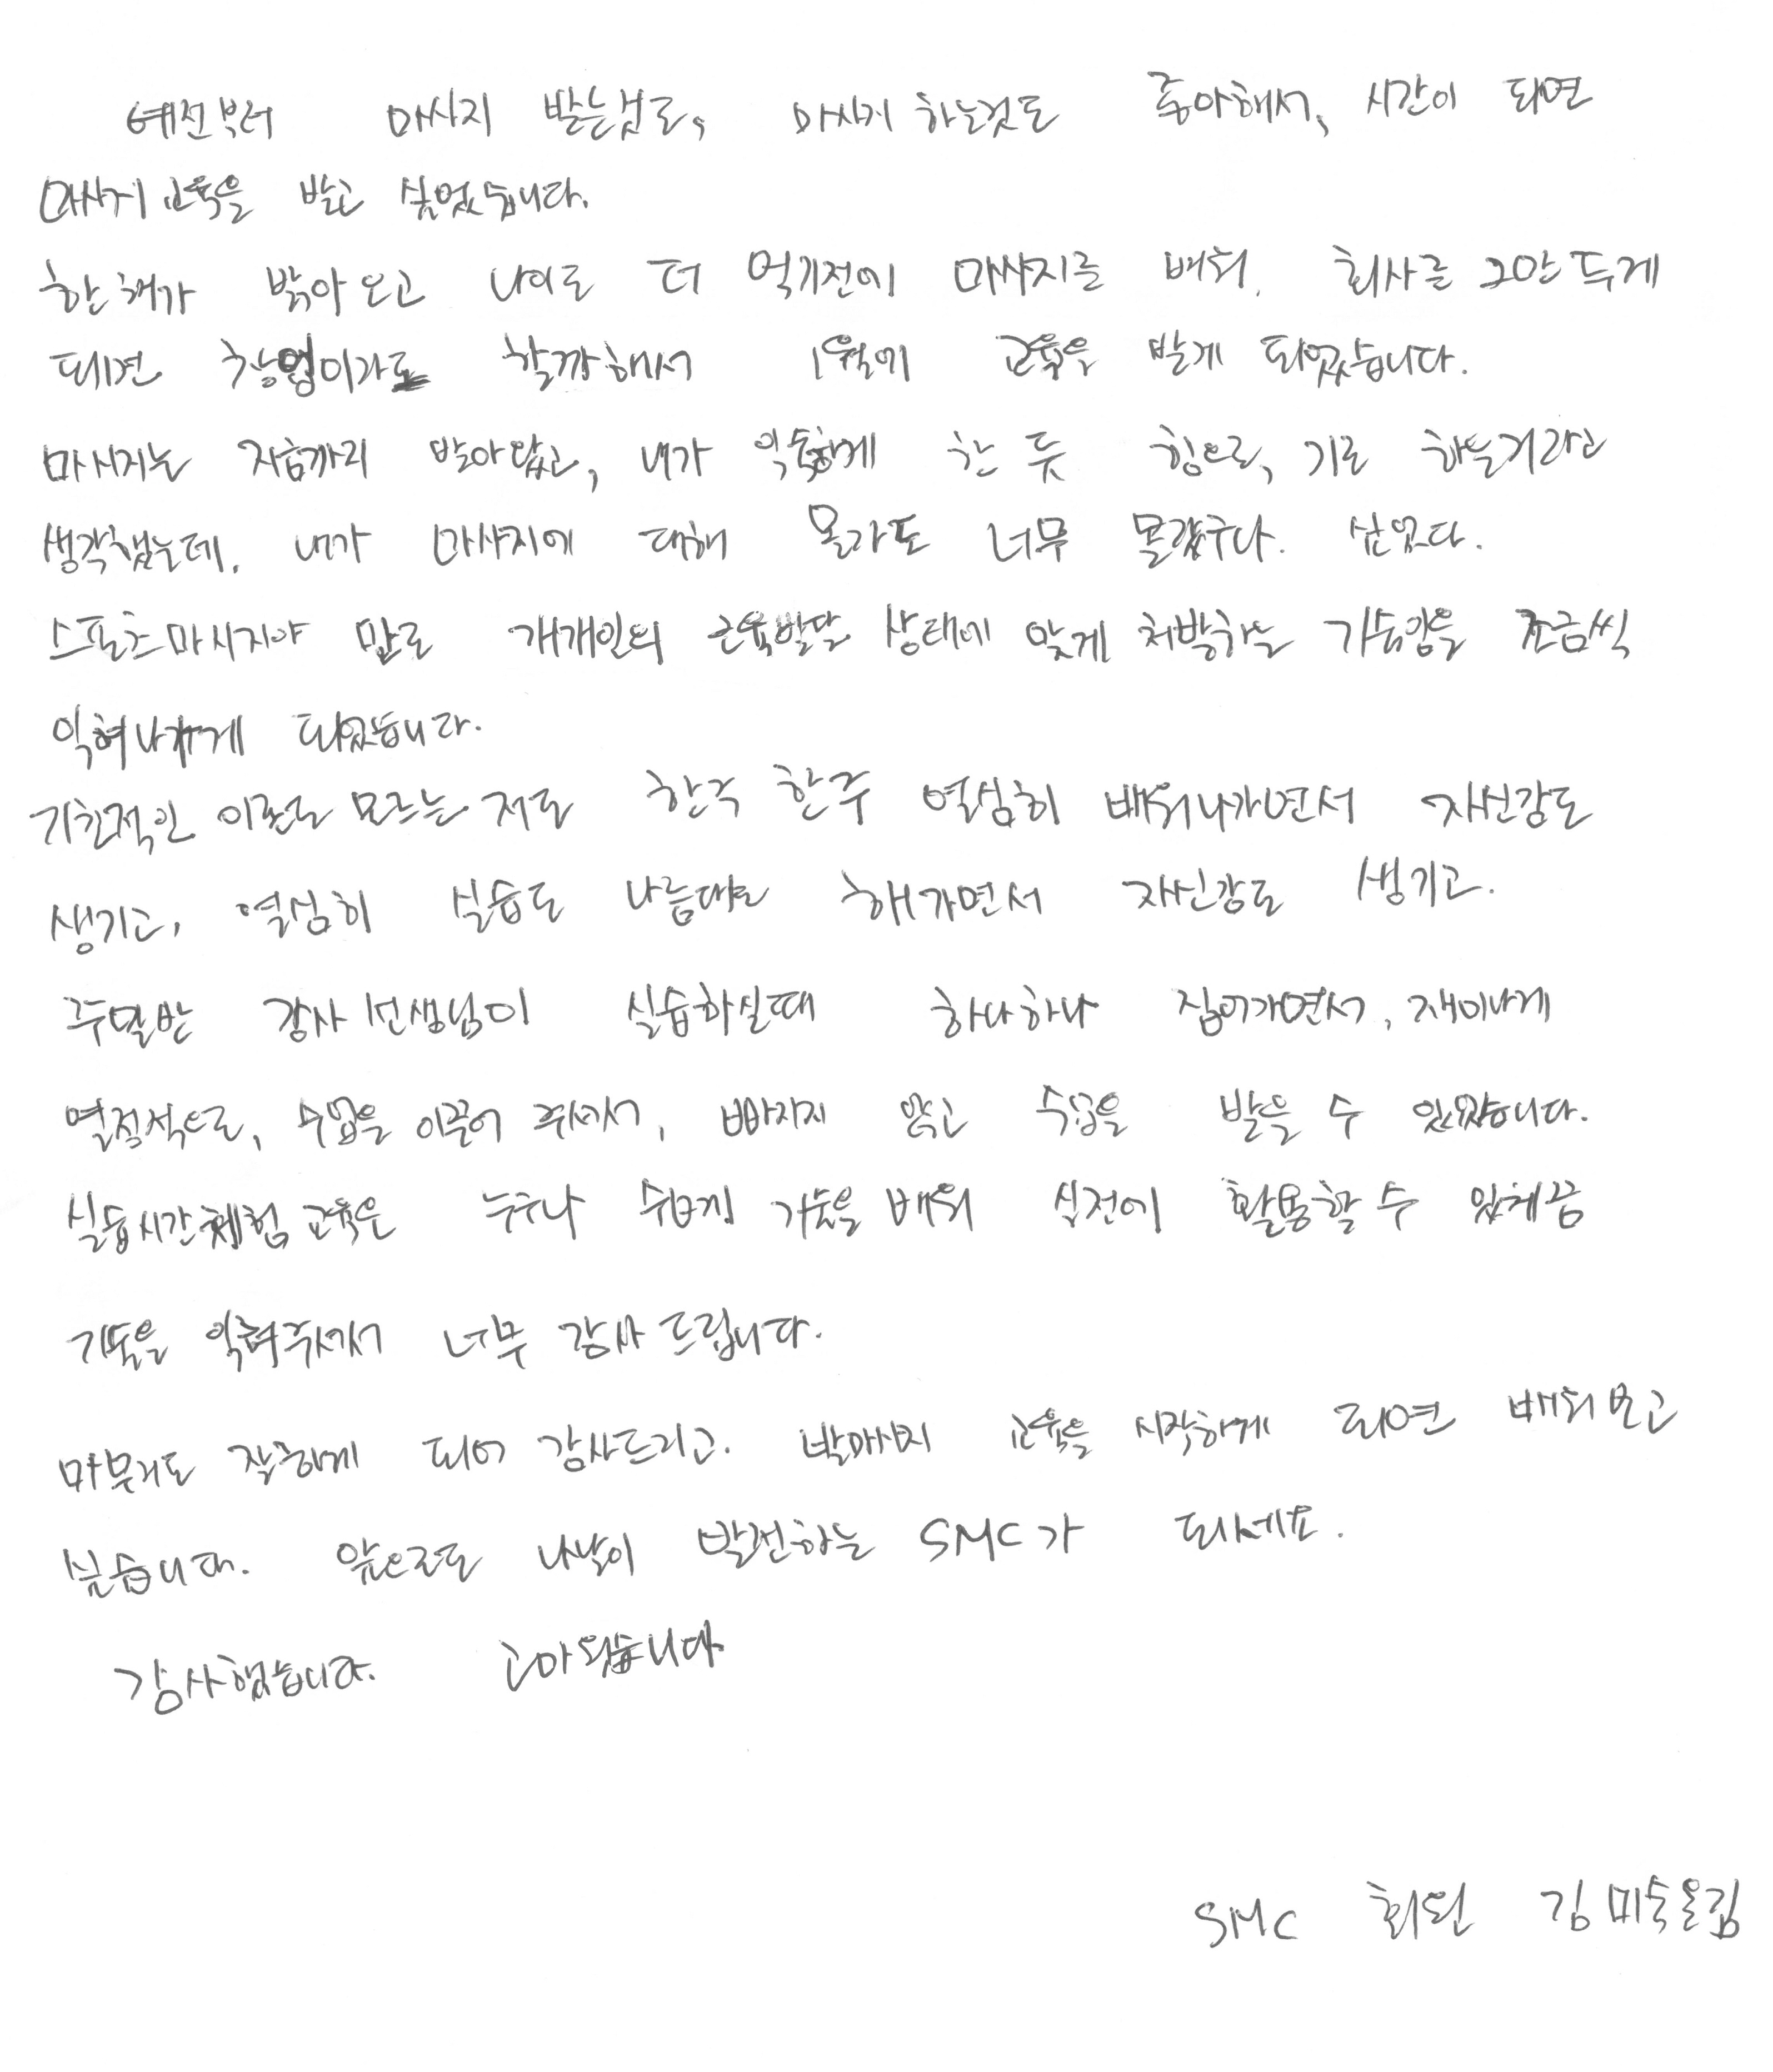 예전부터 마사지 받는것도, 마사지 하는것도 좋아해서, 시간이 되면
마사지 교육을 받고 싶었습니다.
한해가 밝아오고 나이도 더 먹기전에 마사지를 배워. 회사를 그만두게
되면 창업이라도 할까해서 1월에 교육을 받게 되었습니다.
마사지는 지금까지 받아왔고, 내가 익숙하게 한 듯 힘으로, 기로 하는거라고
생각했는데. 내가 마사지에 대해 몰라도 너무 몰랐구나. 싶었다.
스포츠마사지야 말로 개개인의 근육발달 상태에 맞게 처방하는 기술임을 조금씩
익혀나가게 되었습니다.
기초적인 이론도 모르는 저도 한주 한주 열심히 배워나가면서 자신감도
생기고, 열심히 실습도 나름대로 해가면서 자신감도 생기고.
주말반 강사선생님이 실습하실때 하나하나 집어가면서, 재미나게
열정적으로, 수업을 이끌어 주셔서, 빠지지 않고 수업을 받을 수 있었습니다.
실습시간 체험 교육은 누구나 쉽게 기술을 배워 실전에 활용할 수 있게끔
기술을 익혀주셔서 너무 감사드립니다.
마무리도 잘하게 되어 감사드리고. 발마사지 교육을 시작하게 되면 배워보고
싶습니다. 앞으로도 나날이 발전하는 SMC가 되세요.
감사했습니다. 고마웠습니다
SMC 회원 김미숙올림